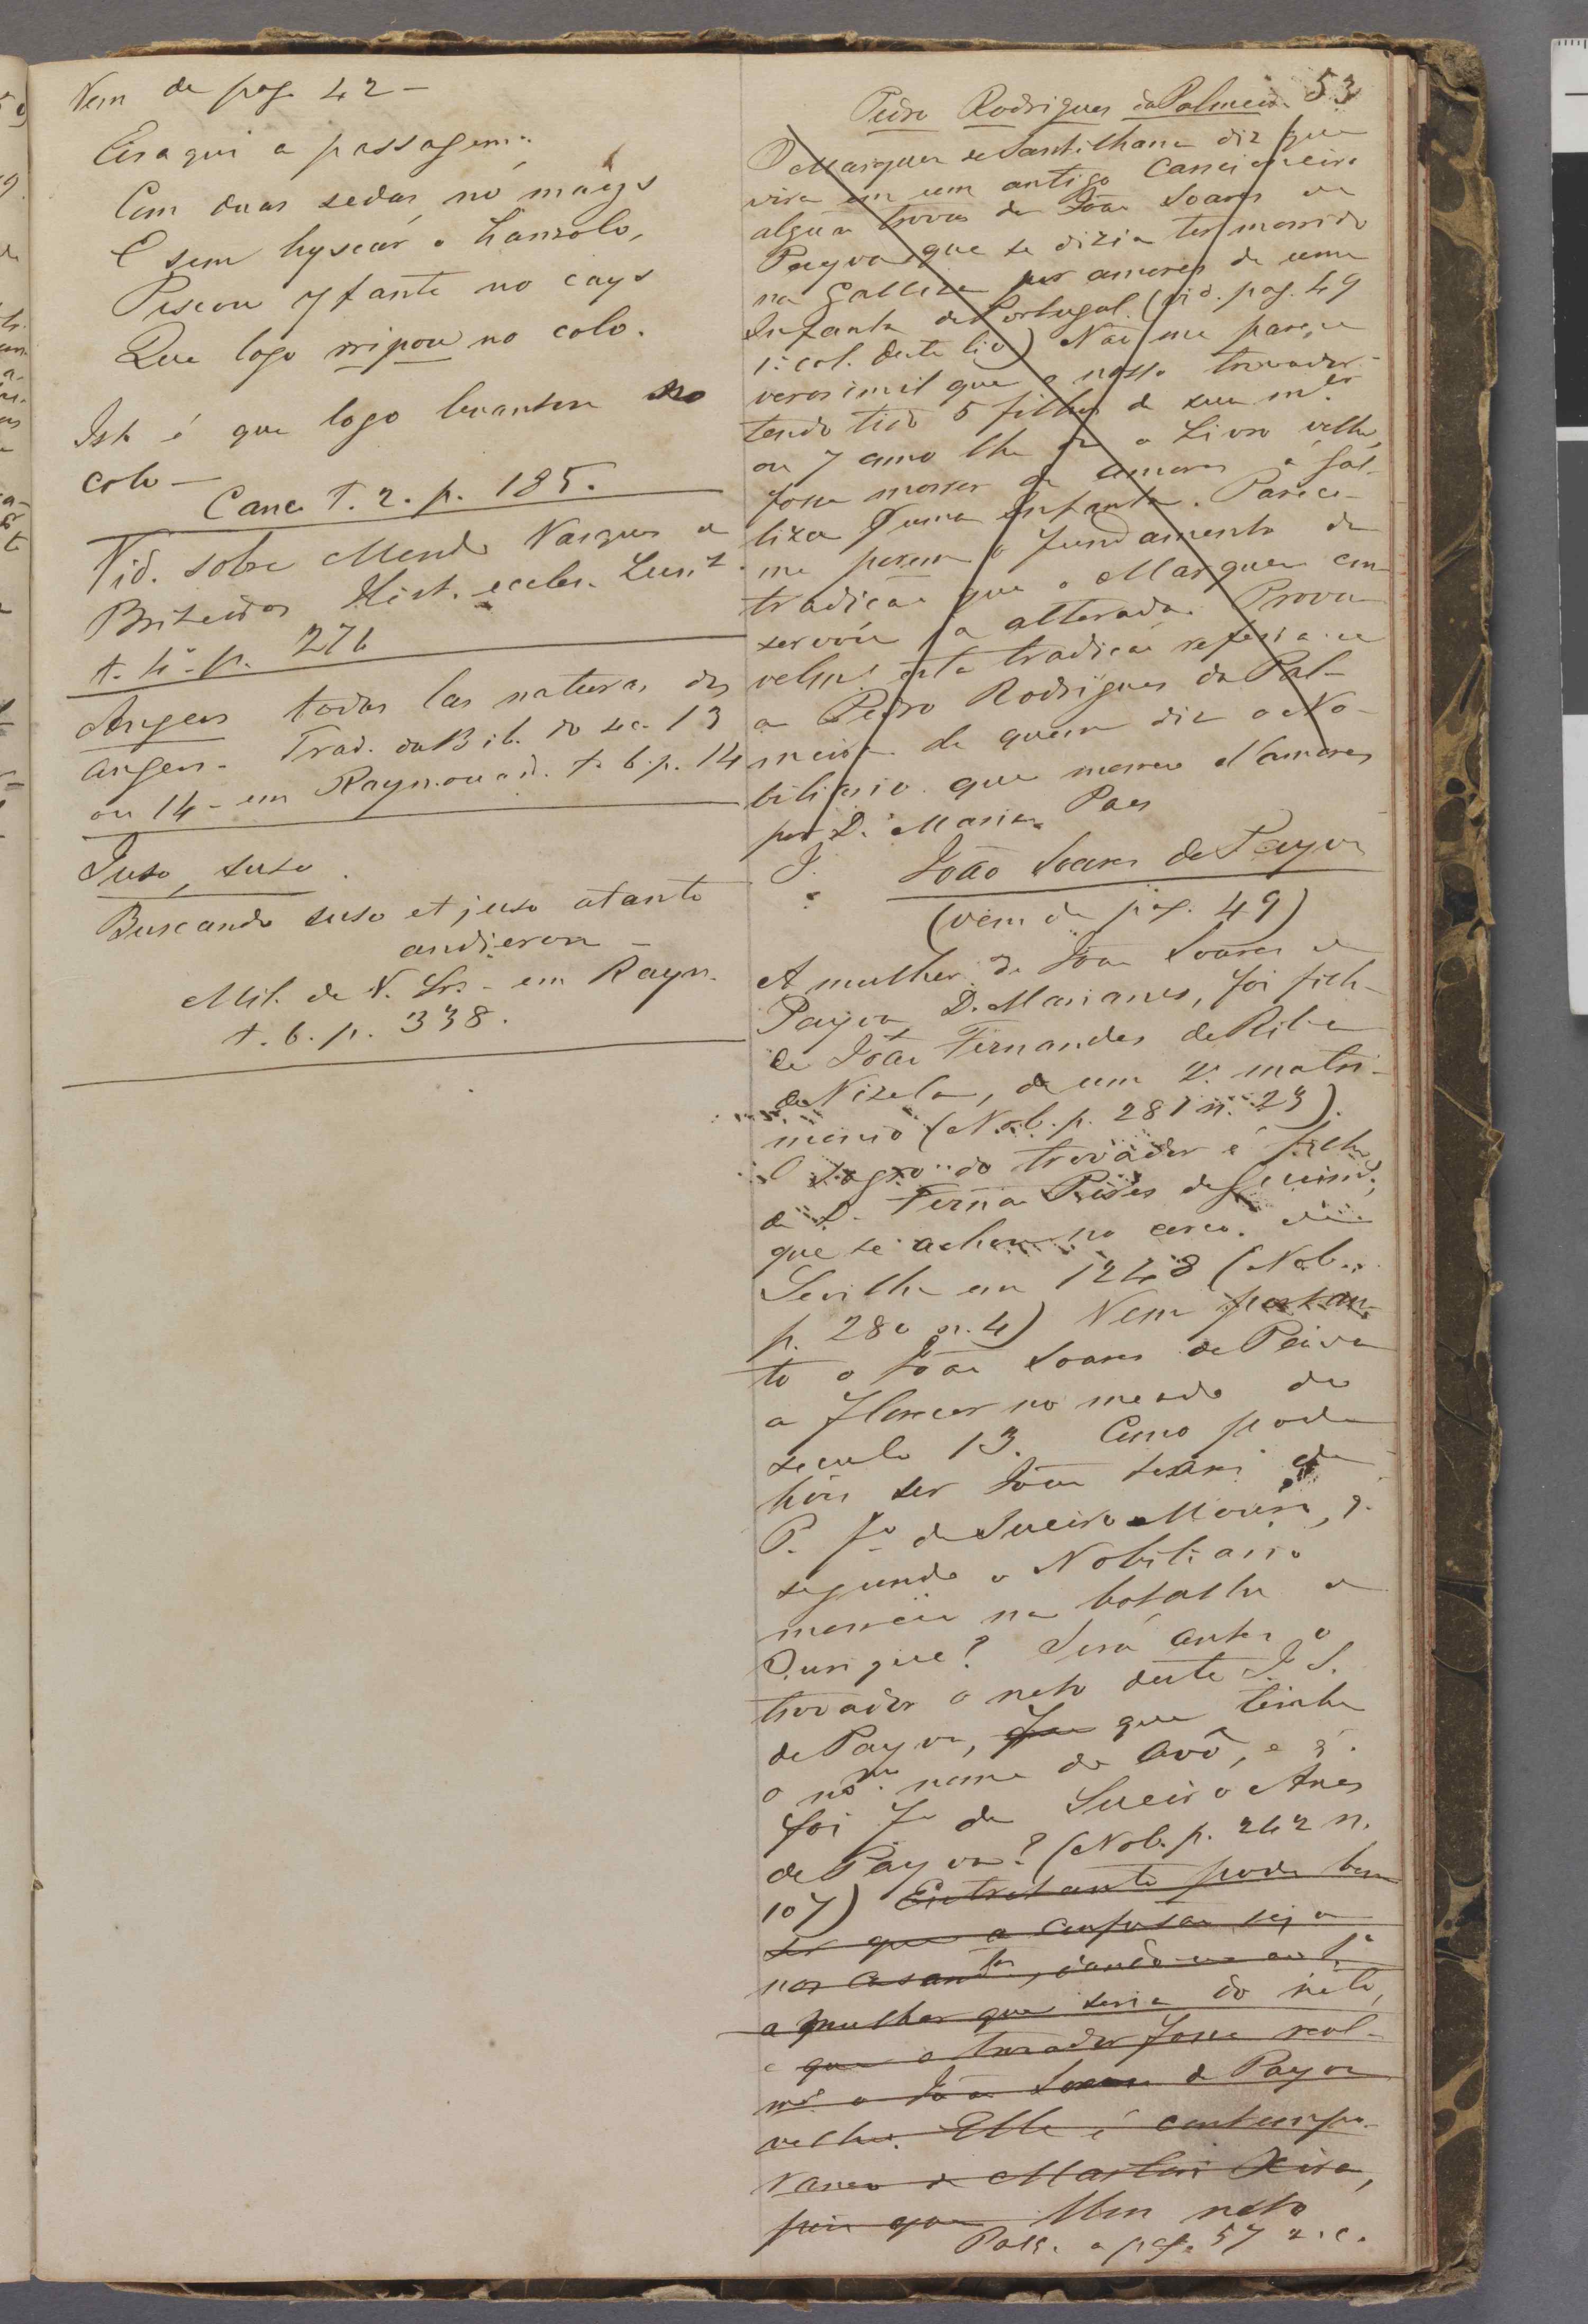 Vem de pag. 42 -
Eis aqui a passagem:
Com duas sedas, no mays
E sem hyscar o hanzolo,
Pescou yfante no cays
Que logo rripou no colo.
Isto é que logo levantou no
colo -
Canc. T. 2. p. 185.
Vid. sobre Mendo Vasques de
Briteiros Hist. eccles. Lus.
t. p. 276
Angeos todas las naturas dos
angeos. Trad. da Bib. do sec. 13
ou 14 - em Raynouard. t. 6. p. 14
Juso, suso
Buscando suso et juso atanto
andieron -
Mil. de N. Sra. - em Rayn.
t. 6. p. 338.
53
Pedro Rodrigues da Palmeira
O Marquez de Santilhana diz que
vira em um antigo Cancioneiro
algũa trovas de João Soares de
Payva que se dizia ter morrido
na Galliza por amores de uma
Infanta de Portugal. (vid. pag. 49
1.ª col. deste liv.) Não me parece
verosimil que o nosso trovador
tendo tido 5 filhos de sua m.er
ou 7 como lhe dá o Livro velho,
fosse morrer de amores á Gal-
liza d'uma Infanta. Parece-
me porem o fundamento da
tradição que o Marquez con-
servou já alterada. Prova-
velm.e esta tradição referia-se
a Pedro Rodrigues da Pal-
meira de quem diz o No-
biliario que morreo d'amores
por D. Maria Paes
J. João Soares de Payva
(vem da pag. 49)
A mulher de João Soares de
Payva, D. Mariannes, foi filha
de João Fernandes de Riba
de Vizela, de um 2.º matri-
monio (Nob. p. 281 n. 23).
O sogro do trovador é filho
de D. Fernão Pires de
que se achou no cerco de
Sevilha em 1248 (Nob.
p. 280 n. 4) Vem portan-
to o João Soares de Paiva
a florecer no meado do
seculo 13. Como pode
pois ser João Soares de
P. f.º de Sueiro Mouro, q.
segundo o Nobiliario
morreu na batalha de
Ourique? Será antes o
trovador o neto deste J. S.
de Payva, que tinha
o m.mo nome do avô, e q.
foi f.º de Sueiro Anes
de Payva? (Nob. p. 242 n.
107) Entretanto pode bem
ser que a confusão seja
nos casam.tos, dando-se ao 1.º
a mulher que seria do neto,
e que o trovador fosse real-
m.e o João Soares de Payva
velho. Elle é contempo-
raneo de Martim Xira,
pois que Um neto
Pass. a pag. 57 2. c.